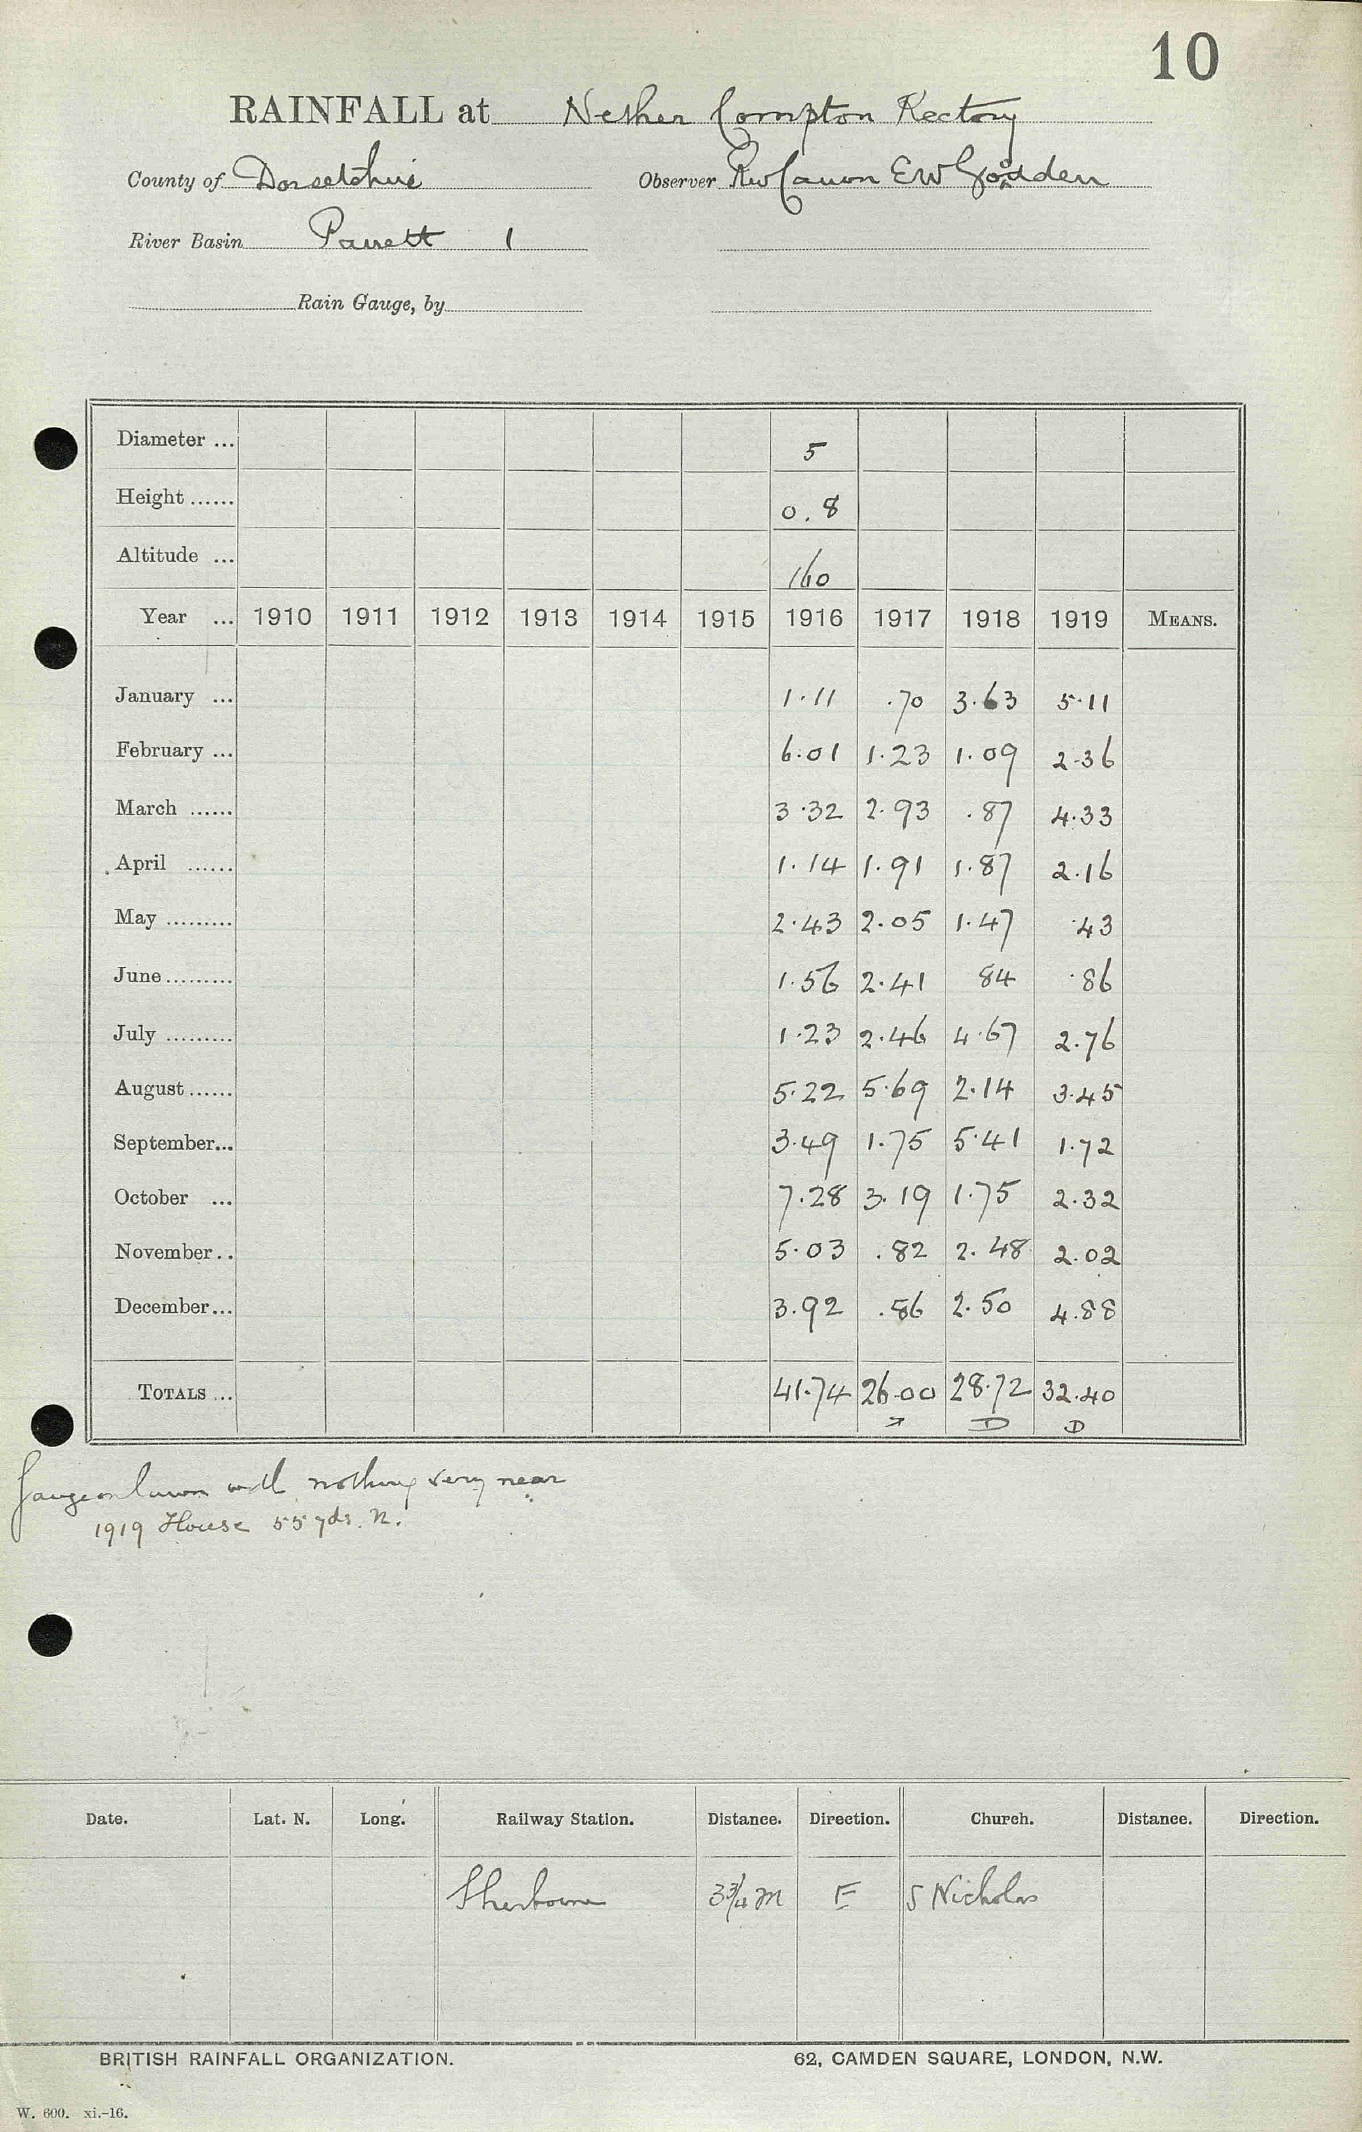 10
RAINFALL at Nether Compton Rectory
County of Dorsetshire Observer Rev Canon E W Godden
River Basin Parrett 1
Rain Gauge, by
Diameter ... 5
Height ...... 0.8
Altitude ... 160
Year ... 1910 1911 1912 1913 1914 1915 1916 1917 1918 1919 MEANS.
January ... 1.11 .70 3.63 5.11
February ... 6.01 1.23 1.09 2.36
March ...... 3.32 2.93 .87 4.33
April ...... 1.14 1.91 1.87 2.16
May ......... 2.43 2.05 1.47 .43
June ......... 1.56 2.41 84 .86
July ......... 1.23 2.46 4.67 2.76
August ...... 5.22 5.69 2.14 3.45
September... 3.49 1.75 5.41 1.72
October ... 7.28 3.19 1.75 2.32
November.. 5.03 .82 2.48 2.02
December... 3.92 .56 2.50 4.88
TOTALS ... 41.74 26.00 28.72 32.40
D D
Gauge on lawn with nothing very near
1919 House 55 yds. N.
Date. Lat. N. Long. Railway Station. Distance. Direction. Church. Distance. Direction.
Sherborne 3¾ m E S Nicholas
BRITISH RAINFALL ORGANIZATION. 62, CAMDEN SQUARE, LONDON, N.W.
W. 600. xi.-16.